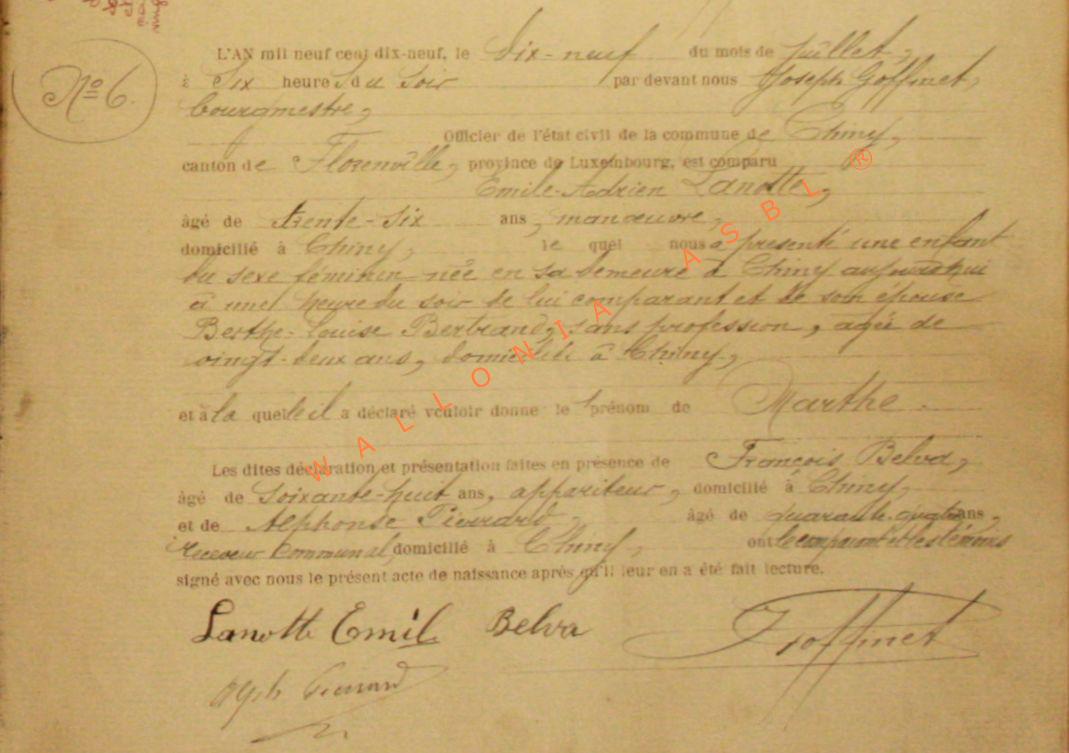 Nº 6.
L'AN mil neuf cent dix-neuf, le dix-neuf du mois de juillet,
à six heures du soir par devant nous Joseph Goffinet,
bourgmestre,
Officier de l'état civil de la commune de Chiny,
canton de Florenville, province de Luxembourg, est comparu
Emile-Adrien Lanotte,
âgé de trente-six ans, manœuvre,
domicilié à Chiny, le quel nous a présenté une enfant
du sexe féminin née en sa demeure à Chiny aujourd'hui
à une heure du soir de lui comparant et de son épouse
Berthe-Louise Bertrand, sans profession, agée de
vingt-deux ans, domiciliée à Chiny,
et à la quelle il a déclaré vouloir donne le prénom de Marthe.
Les dites déclaration et présentation faites en présence de François Belva,
âgé de soixante-huit ans, appariteur, domicilié à Chiny,
et de Alphonse Pierrard, âgé de quarante-quatre ans,
receveur communal, domicilié à Chiny, ont le comparant et les témoins
signé avec nous le présent acte de naissance après qu'il leur en a été fait lecture.
Lanotte Emil Belva JGoffinet
Alph. Pierrard
WALLONIA ASBL ®